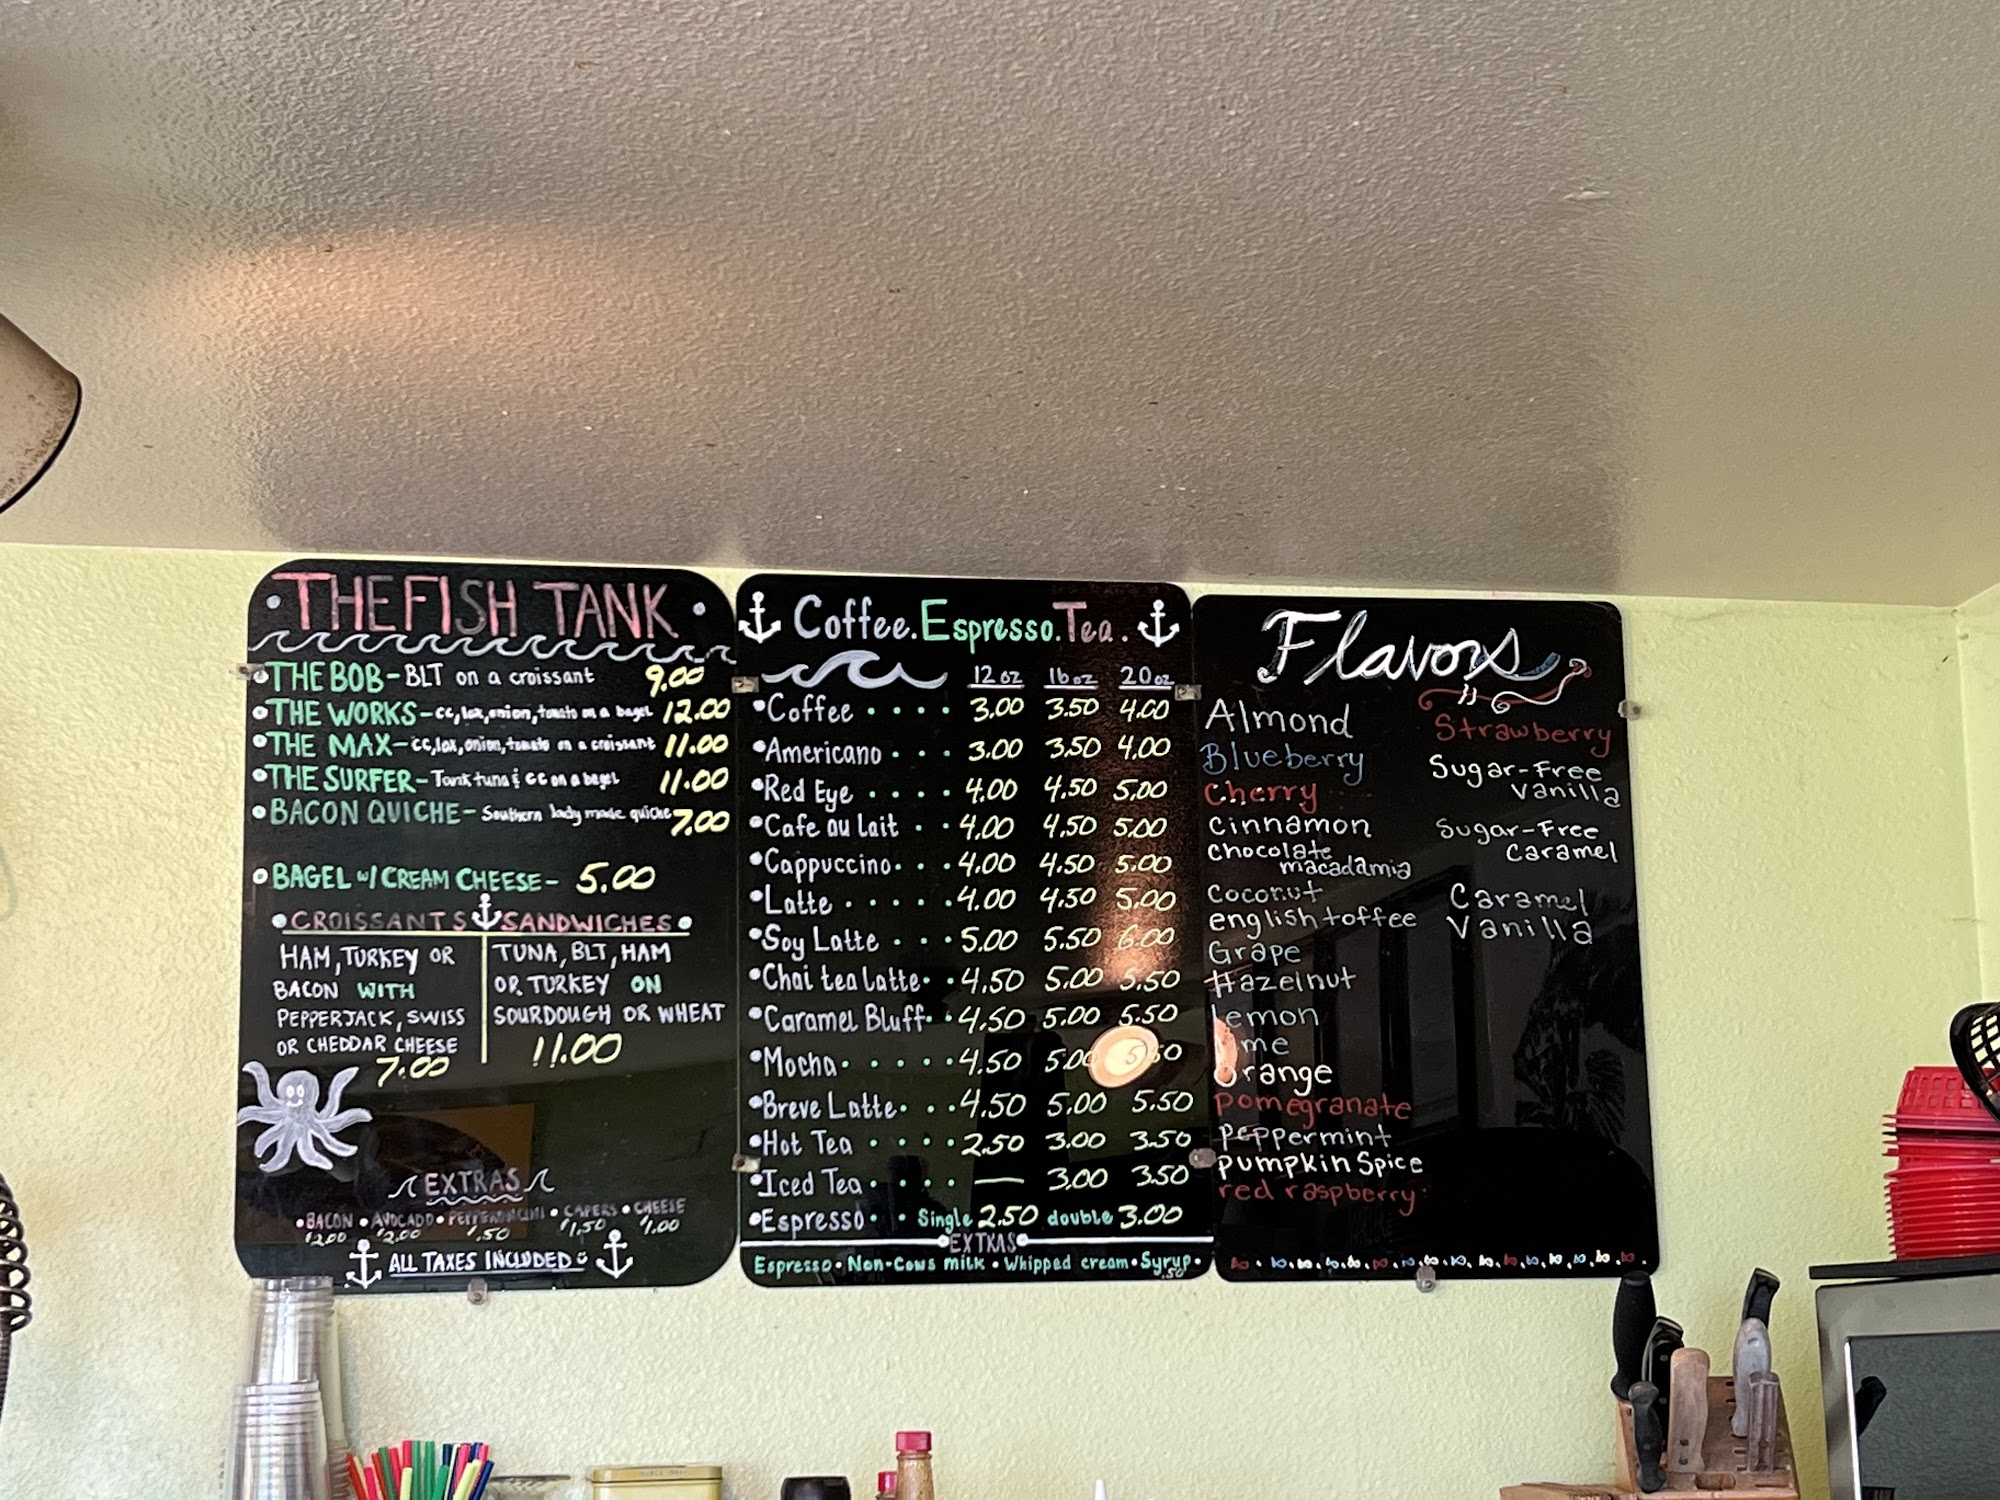 THE FISH TANK
THE BOB - BLT on a croissant 9.00
THE WORKS - cc, lox, onion, tomato on a bagel 12.00
THE MAX - cc, lox, onion, tomato on a croissant 11.00
THE SURFER - Tank tuna & cc on a bagel 11.00
BACON QUICHE - Southern lady made quiche 7.00
BAGEL w/ CREAM CHEESE - 5.00
CROISSANTS
HAM, TURKEY OR
BACON WITH
PEPPERJACK, SWISS
OR CHEDDAR CHEESE
7.00
SANDWICHES
TUNA, BLT, HAM
OR TURKEY ON
SOURDOUGH OR WHEAT
11.00
EXTRAS
• BACON • AVOCADO • PEPPERONCINI • CAPERS • CHEESE
$2.00 $2.00 .50 $1.50 $1.00
ALL TAXES INCLUDED
Coffee. Espresso. Tea.
12 oz 16 oz 20 oz
• Coffee . . . . 3.00 3.50 4.00
• Americano . . . 3.00 3.50 4.00
• Red Eye . . . . 4.00 4.50 5.00
• Cafe au lait . . 4.00 4.50 5.00
• Cappuccino . . . 4.00 4.50 5.00
• Latte . . . . . 4.00 4.50 5.00
• Soy Latte . . . 5.00 5.50 6.00
• Chai tea Latte . . 4.50 5.00 5.50
• Caramel Bluff . . 4.50 5.00 5.50
• Mocha . . . . . 4.50 5.00 5.50
• Breve Latte . . . 4.50 5.00 5.50
• Hot Tea . . . . 2.50 3.00 3.50
• Iced Tea . . . . — 3.00 3.50
• Espresso . . Single 2.50 double 3.00
EXTRAS
Espresso • Non-Cows milk • Whipped cream • Syrup •
.50
Flavors
Almond
Blueberry
Cherry
Cinnamon
Chocolate
macadamia
Coconut
english toffee
Grape
Hazelnut
Lemon
Lime
Orange
Pomegranate
Peppermint
Pumpkin Spice
red raspberry
Strawberry
Sugar-Free
Vanilla
Sugar-Free
Caramel
Caramel
Vanilla